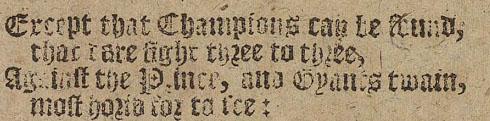 Except that Champions can be found,
that dare fight three to three,
Against the Prince, and Gyants twain,
most horid for to see :